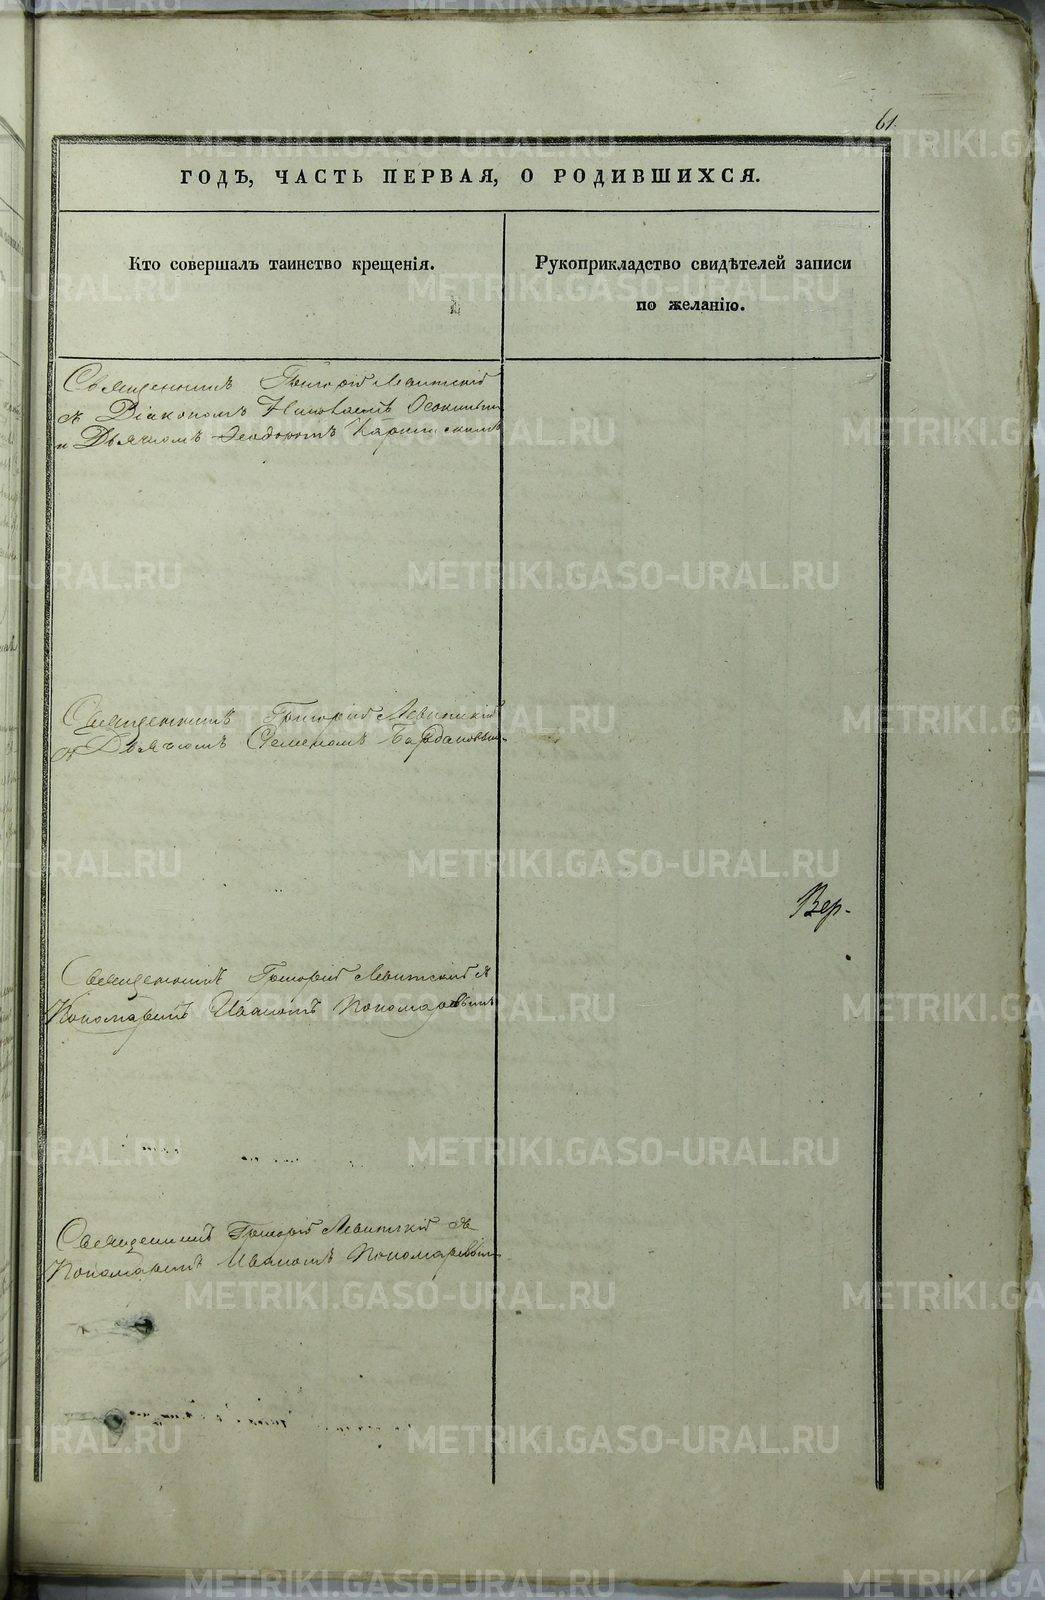 61
ГОДЪ, ЧАСТЬ ПЕРВАЯ, О РОДИВШИХСЯ.
Кто совершалъ таинство крещенія.
Рукоприкладство свидѣтелей записи
по желанію.
Священникъ Григорій Левитскій
съ Діакономъ Николаемъ Осокинымъ
и Дьячкомъ Ѳеодоромъ
Священникъ Григорій Левитскій
съ Дьячкомъ Семеномъ
Вер.
Священникъ Григорій Левитскій съ
Пономаремъ Иваномъ Пономаревымъ
Священникъ Григорій Левитскій съ
Пономаремъ Иваномъ Пономаревымъ
METRIKI.GASO-URAL.RU